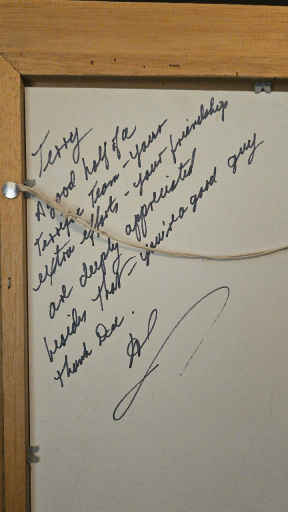 Terry
A good half of a
terrific team - your
extra efforts - your friendship
are deeply appreciated
besides that - you're a good guy
thank